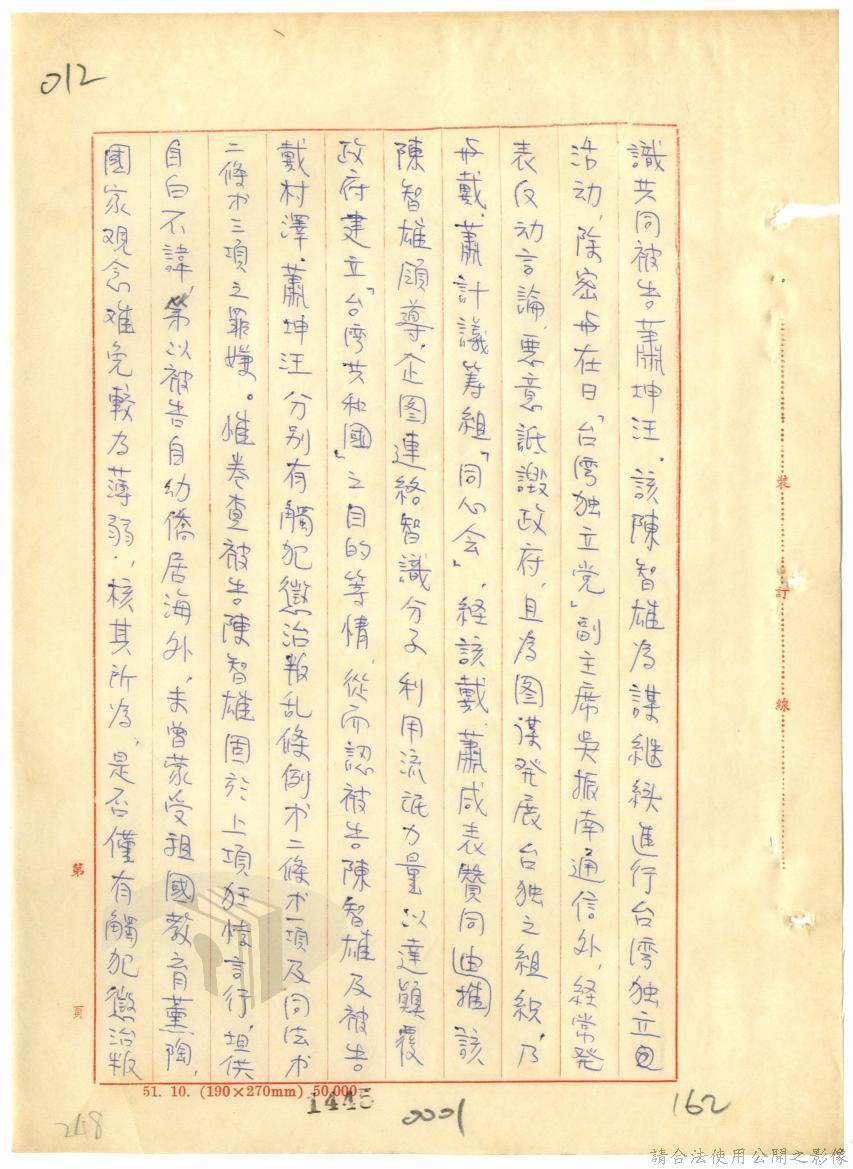 012
識共同被告蕭坤汪．該陳智雄為謀継続進行台湾独立
活动，除密与在日「台湾独立党」副主席吳振南通信外，経常発
表反动言論，悪意詆譭政府，且為图谋発展台独之組織，乃
与戴．蕭計議筹組「同心会」，経該戴．蕭咸表贊同由推該
陳智雄領導，企图連絡智識分子利用流氓力量以達顛覆
政府建立「台湾共和國」之目的等情，從而認被告陳智雄及被告
戴村澤．蕭坤汪分别有觸犯懲治叛乱條例㐧二條㐧一項及同法㐧
二條㐧三項之罪嫌。惟卷查被告陳智雄固於上項狂悖言行，坦供
自白不諱，第以被告自幼僑居海外，未曾蒙受祖國教育薰陶，
國家观念难免較为薄弱，核其所為，是否僅有觸犯懲治叛
裝
訂
線
第
頁
51. 10. (190×270mm) 50,000
1445
0001
162
248
請合法使用公開之影像